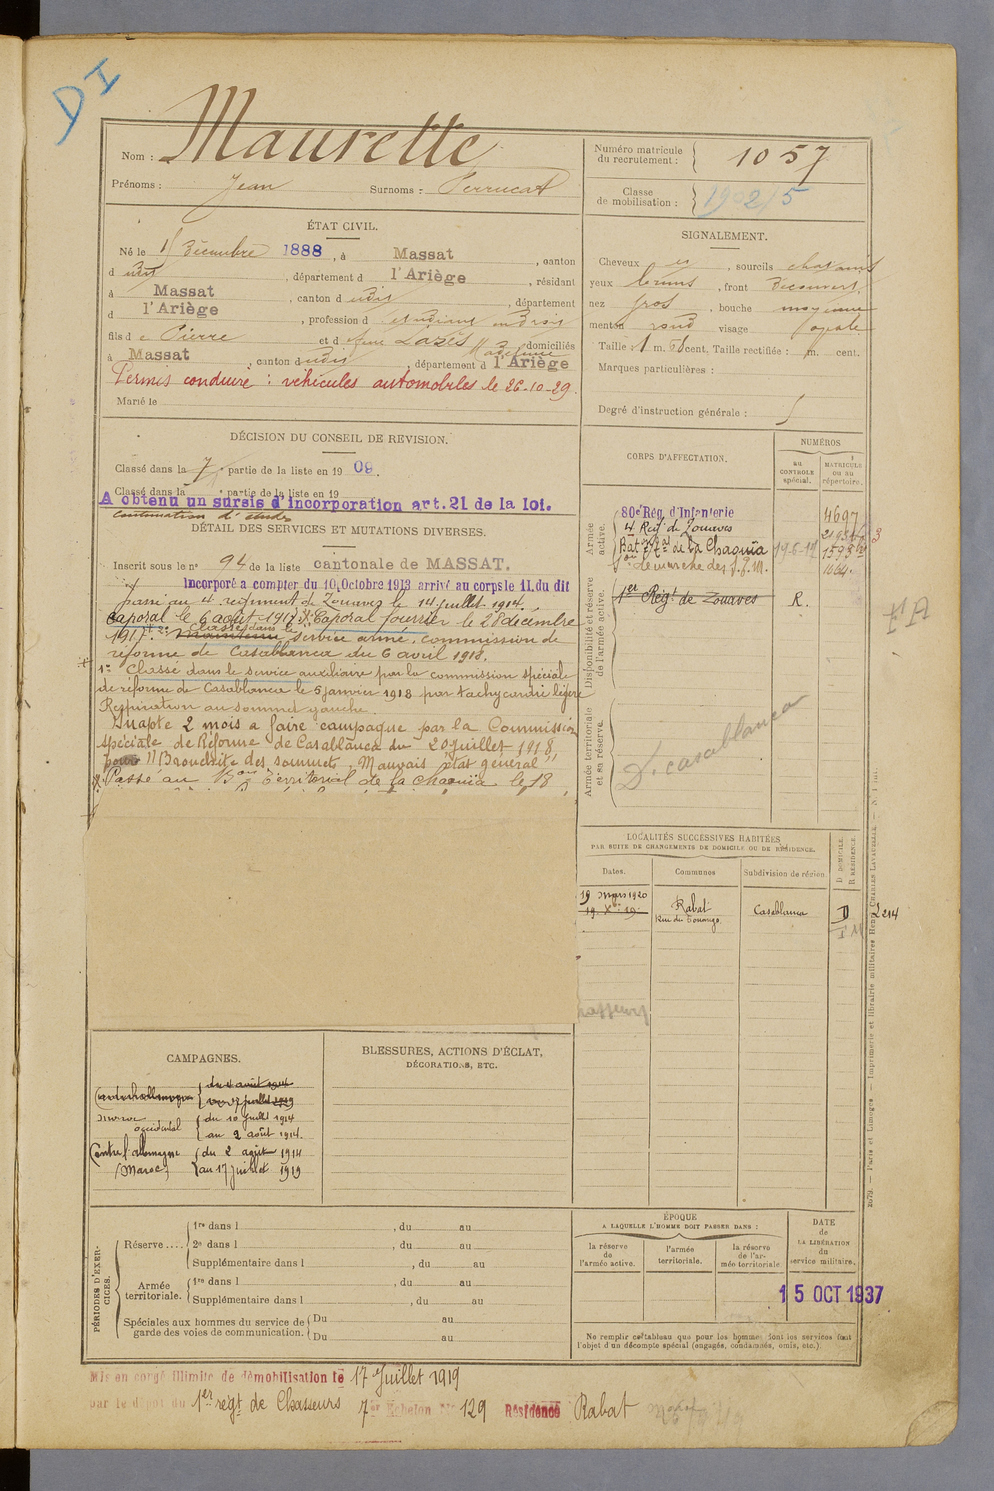 DI
Nom : Maurette
Prénoms : Jean Surnoms : Perrucat
Numéro matricule du recrutement : 1057
Classe de mobilisation : 1902/5
ÉTAT CIVIL.
Né le 1 Décembre 1888, à Massat, canton
d udit, département d l'Ariège, résidant
à Massat, canton d udit, département
d l'Ariège, profession d étudiant en droit
fils d e Pierre et d domiciliés
à Massat, canton d udit, département d l'Ariège
Permis conduire : véhicules automobiles le 26-10-29.
Marié le
SIGNALEMENT.
Cheveux, sourcils chatains
yeux bruns, front découvert,
nez gros, bouche moyenne
menton rond visage ovale
Taille : 1 m. 68 cent. Taille rectifiée : m. cent.
Marques particulières :
Degré d'instruction générale : 5
DÉCISION DU CONSEIL DE REVISION.
Classé dans la 7e partie de la liste en 1909.
Classé dans la partie de la liste en 19
A obtenu un sursis d'incorporation art. 21 de la loi.
continuation d'études
DÉTAIL DES SERVICES ET MUTATIONS DIVERSES.
Inscrit sous le no 94 de la liste cantonale de MASSAT.
Incorporé à compter du 10 Octobre 1913 arrivé au corps le 11 du dit
passé au 4e régiment de Zouaves le 14 juillet 1914.
Caporal le 6 août 1917. Caporal fourrier le 28 décembre
1917. 2e Classé dans le service armé, commission de
réforme de Casablanca du 6 avril 1918.
1° Classé dans le service auxiliaire par la commission spéciale
de réforme de Casablanca le 5 janvier 1918 par tachycardie légère
Respiration au sommet gauche.
Inapte 2 mois à faire campagne par la Commission
spéciale de Réforme de Casablanca du 20 juillet 1918,
pour "Bronchite des sommets, Mauvais état général"
Passé au Bon Territorial de la Chaouïa le 18
CORPS D'AFFECTATION.
NUMÉROS
au CONTRÔLE spécial.
MATRICULE ou au répertoire.
Armée active.
80e Rég. d'Infanterie 4697
4e Regt de Zouaves
Bat. Tal de la Chaouïa 19-6-17
Disponibilité et réserve de l'armée active.
1er Régt de Zouaves R.
FA
Armée territoriale et sa réserve.
D. Casablanca
LOCALITÉS SUCCESSIVES HABITÉES
PAR SUITE DE CHANGEMENTS DE DOMICILE OU DE RÉSIDENCE.
Dates. Communes Subdivision de région. D DOMICILE. R RÉSIDENCE.
19 Mars 1920 Rabat Casablanca D L 214
CAMPAGNES.
BLESSURES, ACTIONS D'ÉCLAT,
DÉCORATIONS, ETC.
Contre l'allemagne du 4 août 1914
au 17 juillet 1919
Maroc du 10 juillet 1914
occidental au 2 août 1914.
Contre l'allemagne du 2 août 1914
(Maroc) au 17 juillet 1919
PÉRIODES D'EXERCICES.
Réserve.... 1re dans l, du au
2e dans l, du au
Supplémentaire dans l, du au
Armée territoriale. 1re dans l, du au
Supplémentaire dans l, du au
Spéciales aux hommes du service de garde des voies de communication. Du au
Du au
ÉPOQUE
A LAQUELLE L'HOMME DOIT PASSER DANS :
la réserve de l'armée active.
l'armée territoriale.
la réserve de l'armée territoriale
DATE de LA LIBÉRATION du service militaire.
15 OCT 1937
Ne remplir ce tableau que pour les hommes dont les services font
l'objet d'un décompte spécial (engagés, condamnés, omis, etc.).
Paris et Limoges. — Imprimerie et librairie militaires Henri CHARLES LAVAUZELLE.
Mis en congé illimité de démobilisation le 17 Juillet 1919
par le dépôt du 1er régt de Chasseurs 7e Echelon No 129 Résidence Rabat